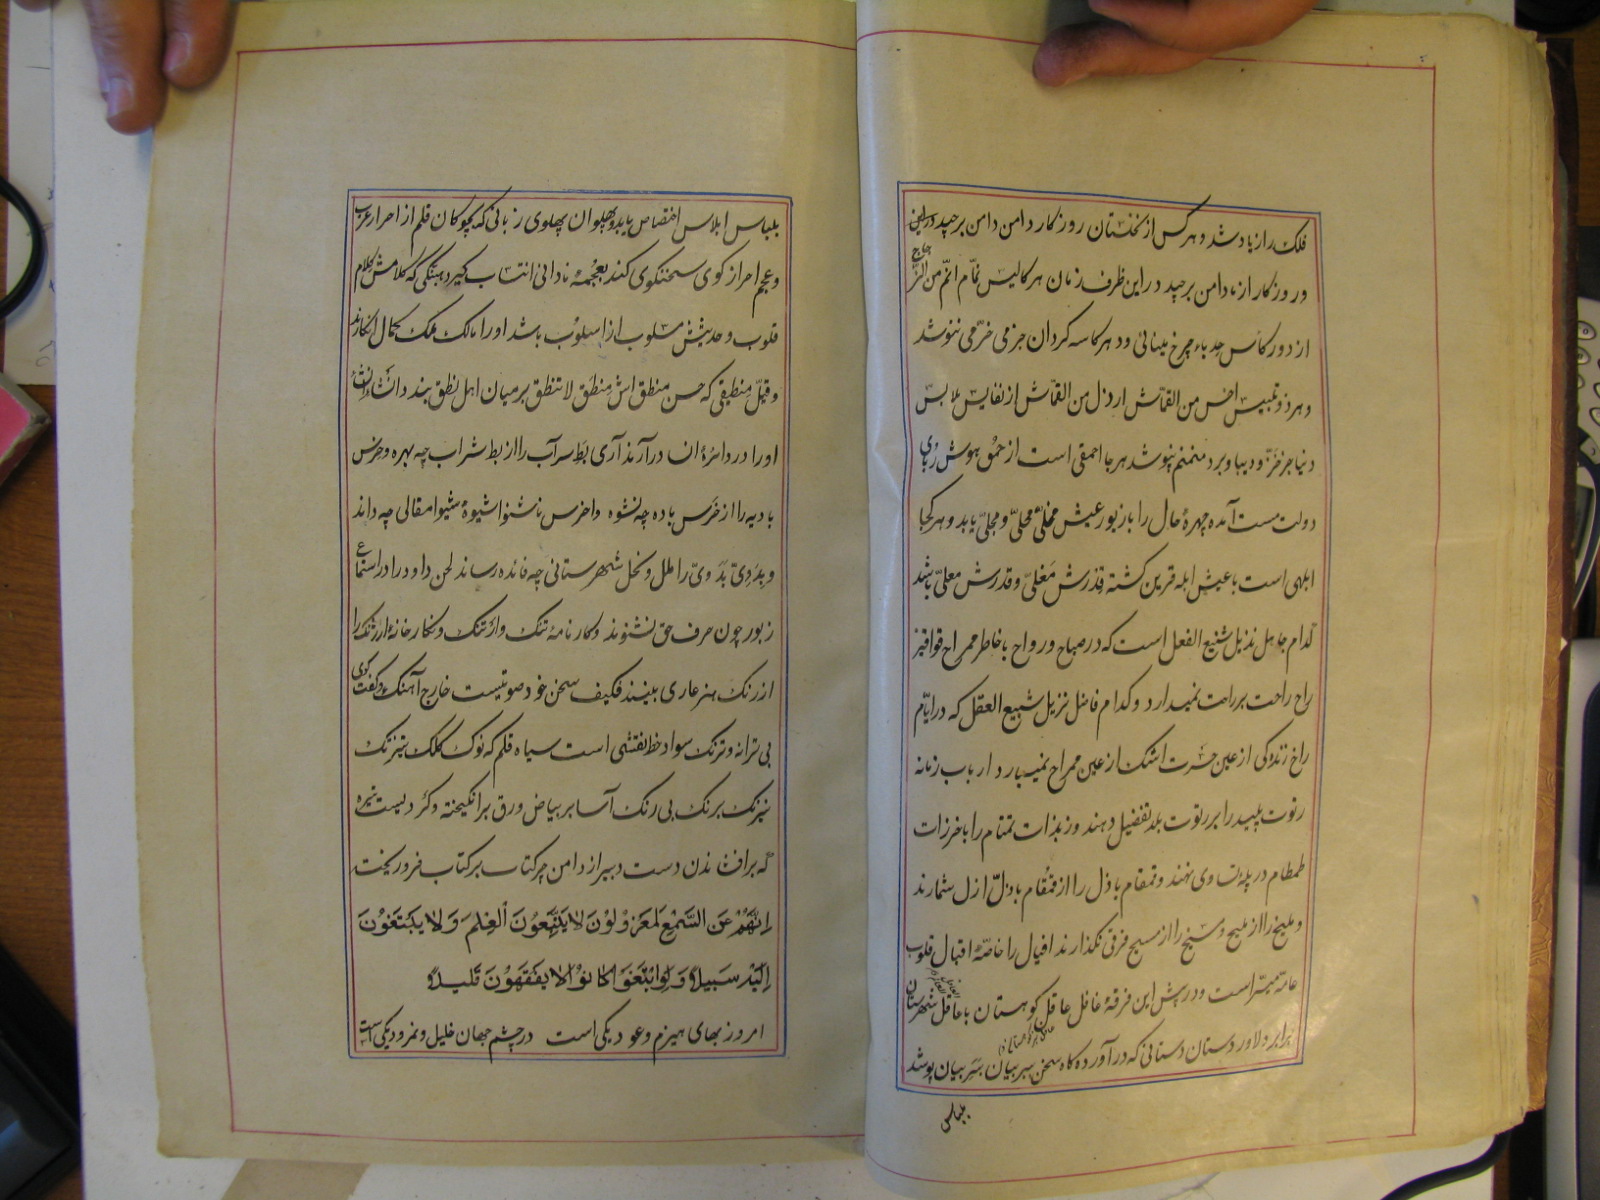 فلک را زیاد شد و هر کس از نخستان روزکار دامن دامن برچید در این
و روزکار از ما دامن برچید در این ظرف زمان هر کالیس نمّام انّم من الزّجاج
از دور کاس جد باء چرخ مینائی ودهر کاسه کردان جز می خرّمی ننوشد
و هر ذو تلبیس اخس من القمّاش ارذل من القماش از نفایس ملابس
دنیا جز خزّ و دیبا و برد منمنم نپوشد هر جا احمقی است از حمق هوش ربای
دولت مست آمده چهرهٔ حال را بازیور عیش محلّی و مجلّی یابد و هر کجا
ابلهی است با عیش ابله قرین کشته قدرش مغلیّ و قدرش معلیّ باشد
کدام جاهل نذیل شنیع الفعل است که در صباح و رواح با خاطر ممراح قوافیز
راح راحت بر راحت نمیدارد و کدام فاضل نزیل شبیع العقل که در ایّام
راغ زندکی از عین حسرت اشک از عین ممراح نمیبارد ارباب زمانه
رتوت پلید را بر رتوت بلد تفضیل دهند و زبذات تمتام را با خرزات
طمطام در پله تساوی نهند و قمقام باذل را از قمقام با ذلّ ازل شمارند
و ملیخ را از ملیح و سیخ را از مسیح فرقی نکذارند اقبال را خاصّهٔ اقبال قلوب
عامّه میسّر است و در پیش این فرقهٔ غافل عاقل کوهستان با عاقل شهرستان
برابر دلاور دستان دستانی که در آورد کاه سخن ببر بیان ببّر بیان پوشد
بلباس
بلباس ابلاس اختصاص یابد و پهلوان پهلوی زبانی که بچوکان قلم از احرار عرب
و عجم احراز کوی سخنکوی کند بعجمهٔ نادانی انتساب کیرد هبنّکی که کلامش کلام
قلوب و حدیثش مسلوب از اسلوب باشد او را مالک ملک کمال انکارند
و قیّل منطیقی که حسن منطق اش منطق لا تنطق بر میان اهل نطق بندد انشاء و انشاد
او را در دائرهٔ ان در آرند آری بطّ سرآب را از بط شراب چه بهره و خرس
بادیه را از خرس باده چه نشوه و اخرس ناشنوا شیوهٔ شیوا مقالی چه داند
و بدردیّ بدویّ را طلل و نخل شهرستانی چه فائده رساند لحن داود را در استماع
زبور چون حرف حق نشنوند و کارنامهٔ تنک و ارتنک و نکارخانهٔ ارژنک را
از رنک هنر عاری بینند فکیف سخن خود صوتیست خارج آهنک و کفت کوی
بی ترانه و ترنک سواد خط نقشی است سیاه قلم که نوک کلک تیزتک
نیرنک برنک بی رنک آسا بر بیاض ورق بر انکیخته و کردیست تیره
که برافشاندن دست دبیر از دامن چرکتاب بر کتاب فرو ریخت
اِنَّهُمْ عَنِ السَّمْعِ لَمَعْزُولُوْنَ لَا یَتَّبِعُوْنَ الْعِلْمَ وَلَا یَبْتَغُوْنَ
اِلَیْهِ سَبِیلاً وَلَوِ ابْتَغَوْا کَانُوْا لَا یَفْقَهُوْنَ قَلِیلاً
امروز بهای هیزم و عود یکی است در چشم جهان خلیل و نمرود یکی است